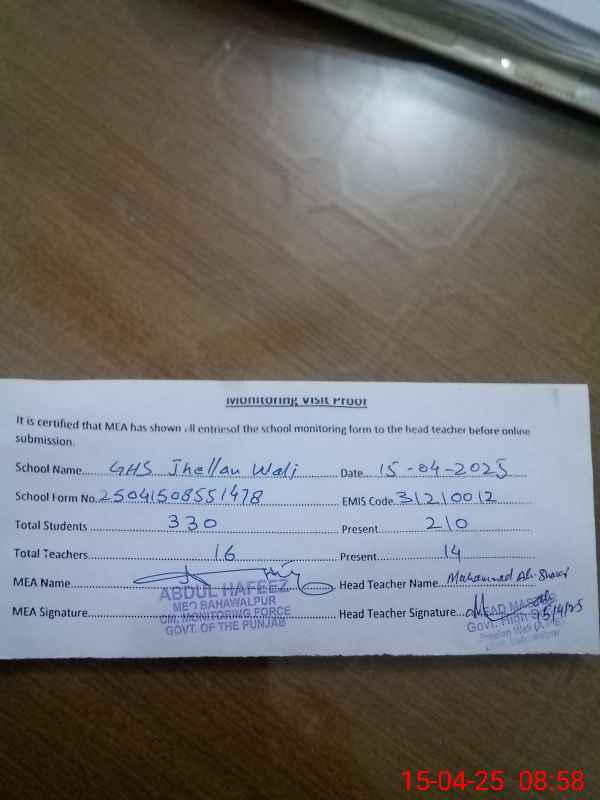 Monitoring Visit Proof
It is certified that MEA has shown all entriesof the school monitoring form to the head teacher before online
submission.
School Name... GHS Jhellan Wali ... Date... 15-04-2025
School Form No. 25041508551478 ... EMIS Code 31210012
Total Students ... 330 ... Present ... 210
Total Teachers ... 16 ... Present ... 14
MEA Name ... Head Teacher Name... Muhammad Ali
ABDUL HAFEEZ
MEO BAHAWALPUR
MEA Signature ... Head Teacher Signature...
CM, MONITORING FORCE
GOVT. OF THE PUNJAB
HEAD MASTER
Govt. High
15/4/25
15-04-25 08:58